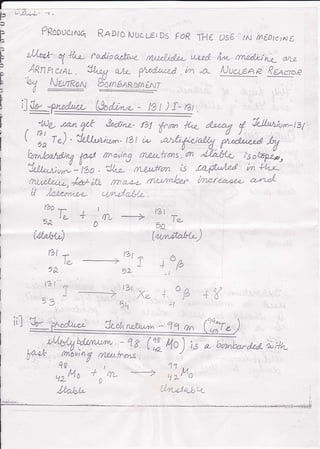 PRODUCING RADIO NUCLEIDS FOR THE USE IN MEDICINE
Most of the radioactive nucleides used in medicine are
ARTIFICIAL. They are produced in a NUCLEAR REACTOR
by NEUTRON BOMBARDMENT
i] To produce (Iodine - 131) I-131
We can get Iodine-131 from the decay of Tellurium-131
( 131 52 Te). Tellurium-131 is artificially produced by
bombarding fast moving neutrons on stable isotopes,
Tellurium-130. The neutron is captured in the
nucleus, its mass number increases and
it becomes unstable.
130 52 Te + 1 0 n → 131 52 Te
(stable) (unstable)
131 52 Te → 131 52 I + 0 -1 β
131 53 I → 131 54 Xe + 0 -1 β + γ
ii] To produce Technetium-99 m (99m Te)
Molybdenum-98 (98 42 Mo) is a bombarded with
fast moving neutrons
98 42 Mo + 1 0 n → 99 42 Mo
Stable Unstable